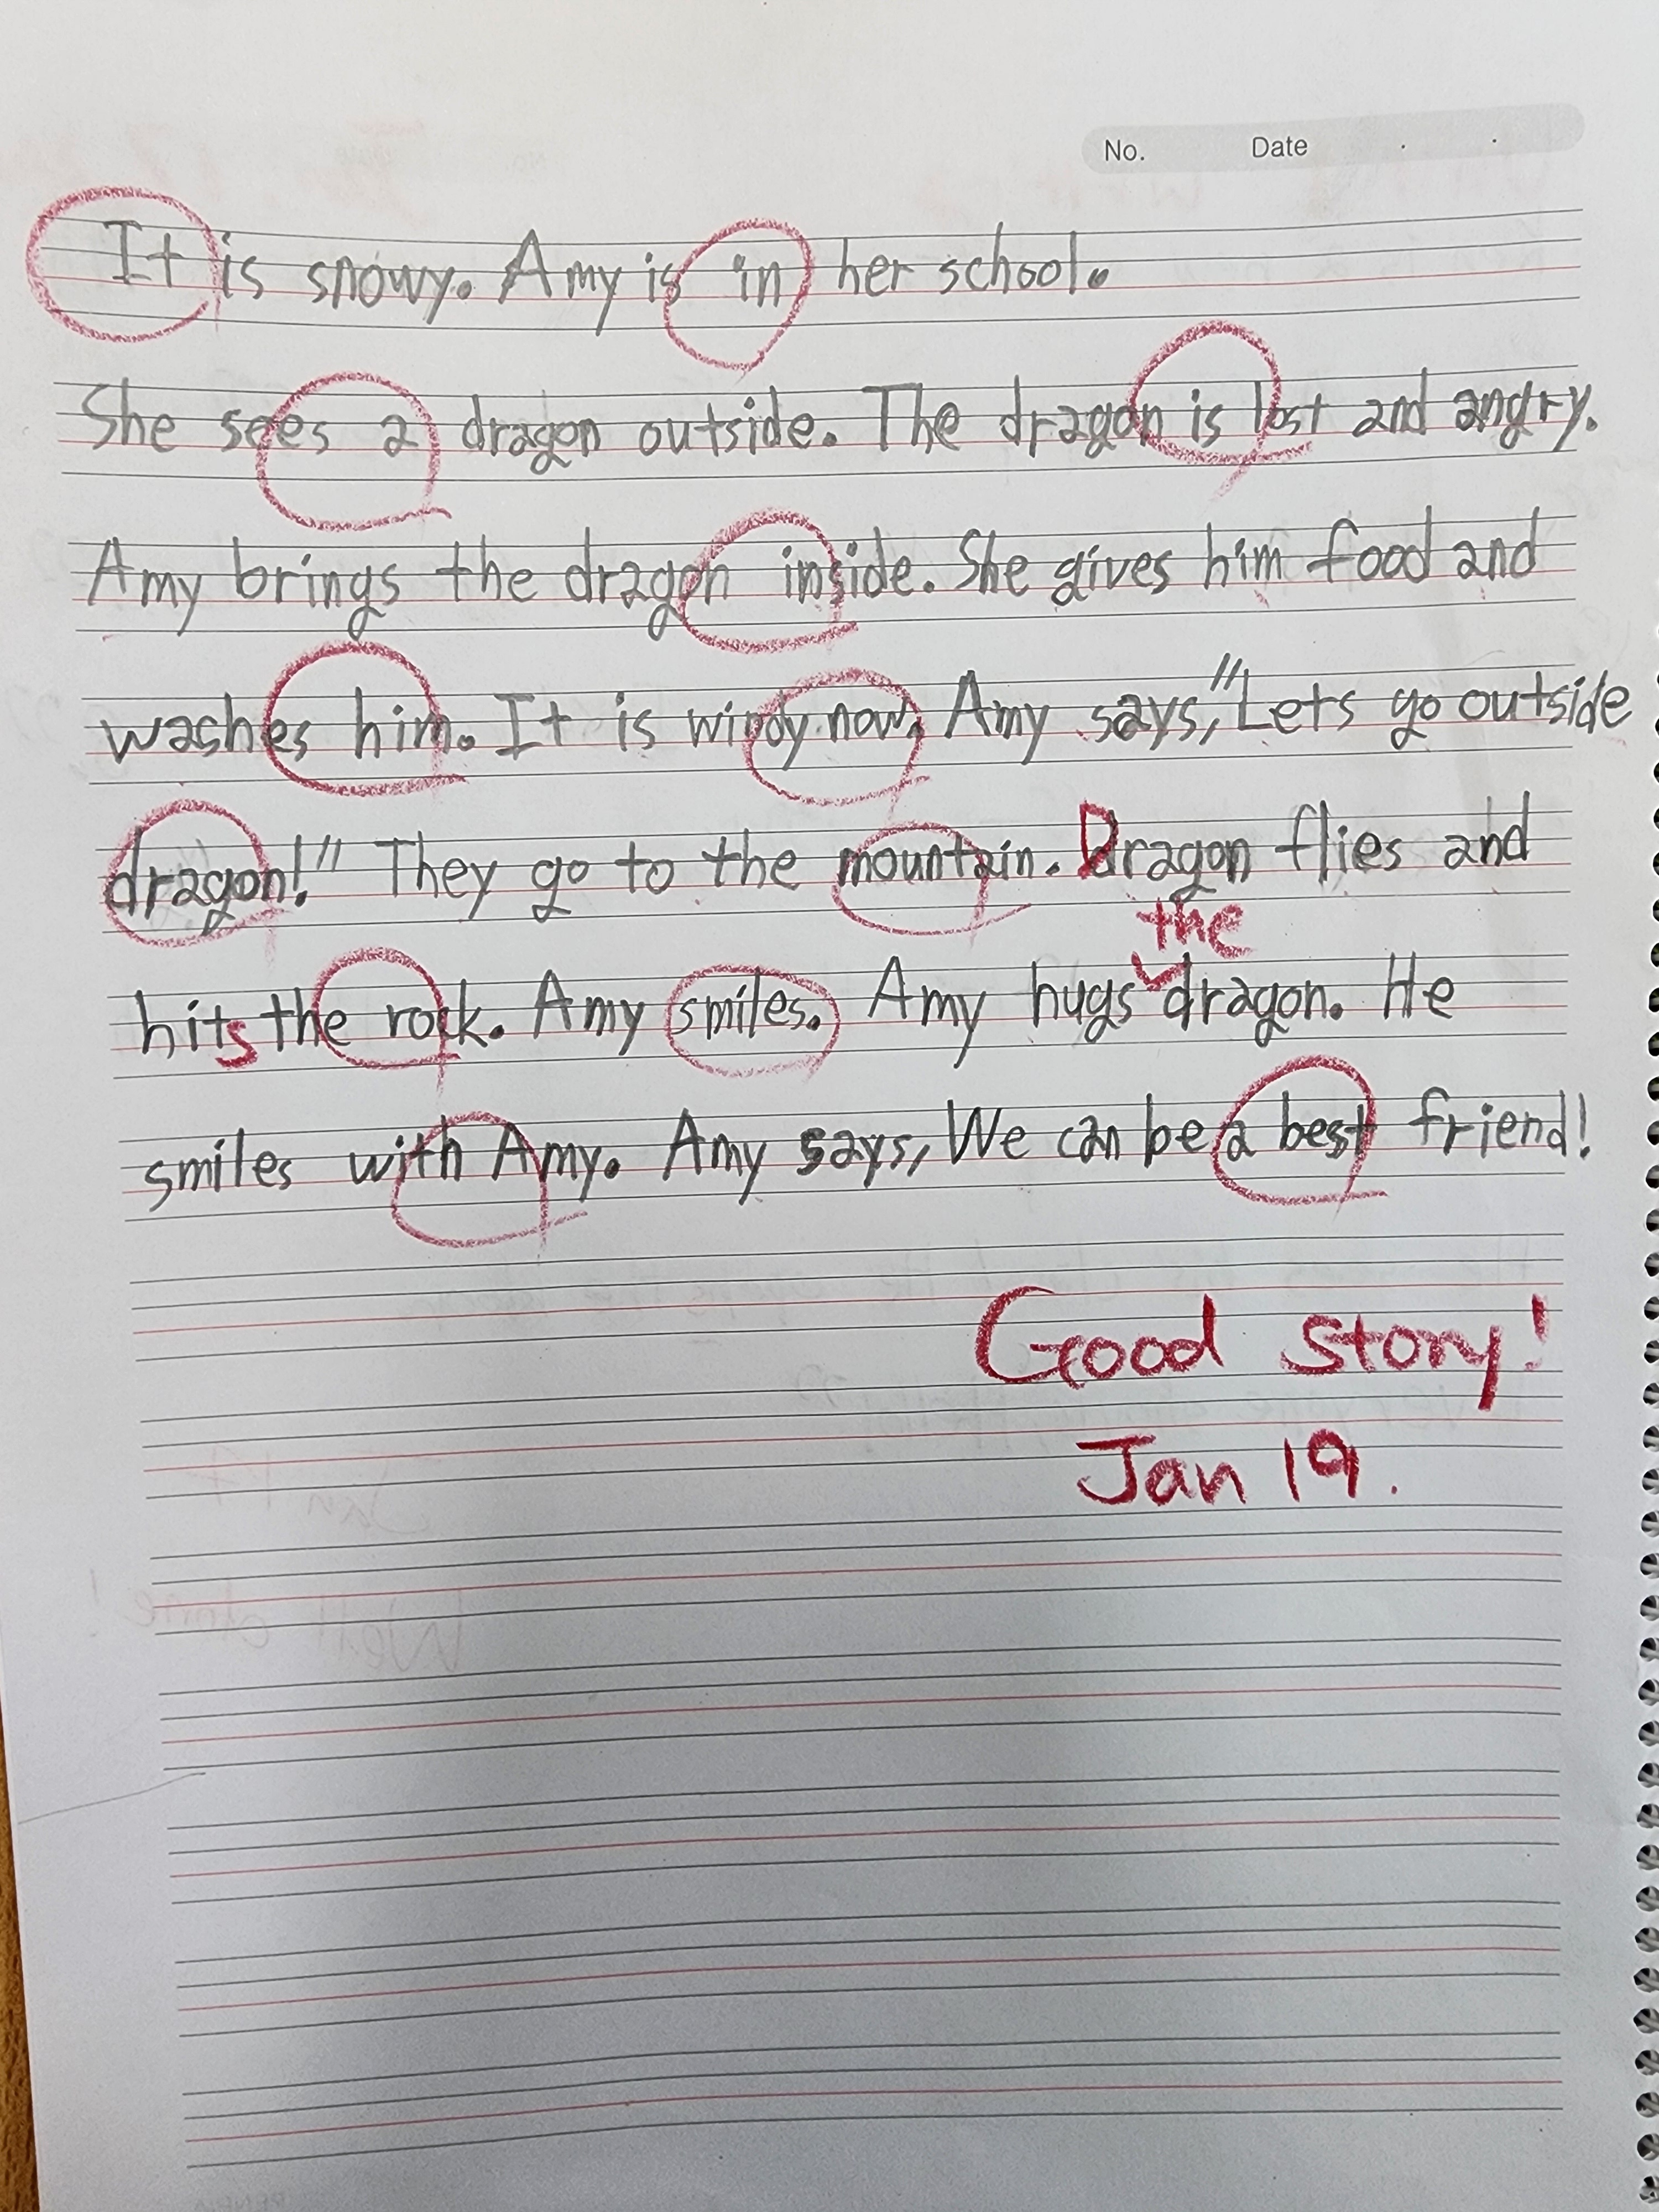 No. Date . .
It is snowy. Amy is in her school.
She sees a dragon outside. The dragon is lost and angry.
Amy brings the dragon inside. She gives him food and
washes him. It is windy now. Amy says, "Lets go outside
dragon!" They go to the mountain. Dragon flies and
the
hits the rock. Amy smiles. Amy hugs dragon. He
smiles with Amy. Amy says, We can be a best friend!
Good story!
Jan 19.